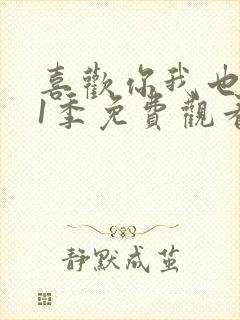 喜歡你我也
1季免費觀看
靜默成茧